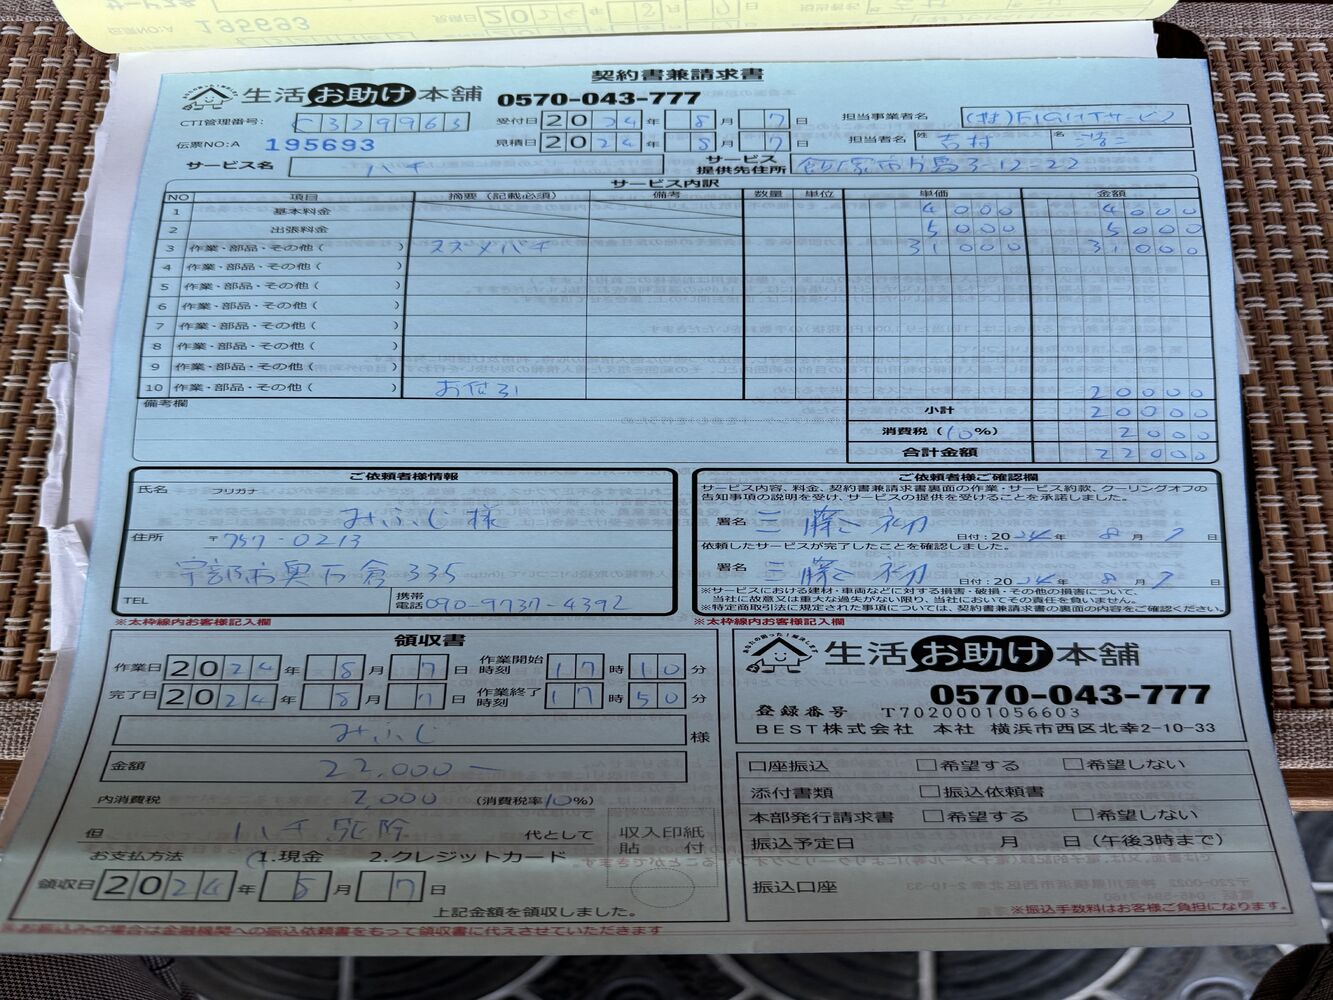 契約書兼請求書
生活お助け本舗 0570-043-777
CTI管理番号: C329963 受付日 2024年 8月 7日 担当事業者名 (株)FIGHTサービス
伝票NO:A 195693 見積日 2024年 8月 7日 担当者名 姓 吉村 名
サービス名 ハチ サービス提供先住所 3-12-22
サービス内訳
NO 項目 摘要(記載必須) 備考 数量 単位 単価 金額
1 基本料金 4000 4000
2 出張料金 5000 5000
3 作業・部品・その他( ) スズメバチ 31000 31000
4 作業・部品・その他( )
5 作業・部品・その他( )
6 作業・部品・その他( )
7 作業・部品・その他( )
8 作業・部品・その他( )
9 作業・部品・その他( )
10 作業・部品・その他( ) お値引 20000
備考欄 小計 20000
消費税(10%) 2000
合計金額 22000
ご依頼者様情報
氏名 フリガナ
みふじ様
住所 〒757-0213
宇部市奥万倉335
TEL 携帯電話 090-9737-4392
※太枠線内お客様記入欄
ご依頼者様ご確認欄
サービス内容、料金、契約書兼請求書裏面の作業・サービス約款、クーリングオフの
告知事項の説明を受け、サービスの提供を受けることを承諾しました。
署名 三藤 初 日付:2024年 8月 7日
依頼したサービスが完了したことを確認しました。
署名 三藤 初 日付:2024年 8月 7日
※サービスにおける建材・車両などに対する損害・破損・その他の損害について、
当社に故意又は重大な過失がない限り、当社においてその責任を負いません。
※特定商取引法に規定された事項については、契約書兼請求書の裏面の内容をご確認ください。
※太枠線内お客様記入欄
領収書
作業日 2024年 8月 7日 作業開始時刻 17時10分
完了日 2024年 8月 7日 作業終了時刻 17時50分
みふじ 様
金額 22,000-
内消費税 2,000 (消費税率10%)
但 ハチ駆除 代として
お支払方法 1.現金 2.クレジットカード
領収日 2024年 8月 7日
上記金額を領収しました。
収入印紙
貼 付
※お振込みの場合は金融機関への振込依頼書をもって領収書に代えさせていただきます
あなたの困った!解決します
生活お助け本舗
0570-043-777
登録番号 T7020001056603
BEST株式会社 本社 横浜市西区北幸2-10-33
口座振込 □希望する □希望しない
添付書類 □振込依頼書
本部発行請求書 □希望する □希望しない
振込予定日 月 日(午後3時まで)
振込口座
※振込手数料はお客様ご負担になります。